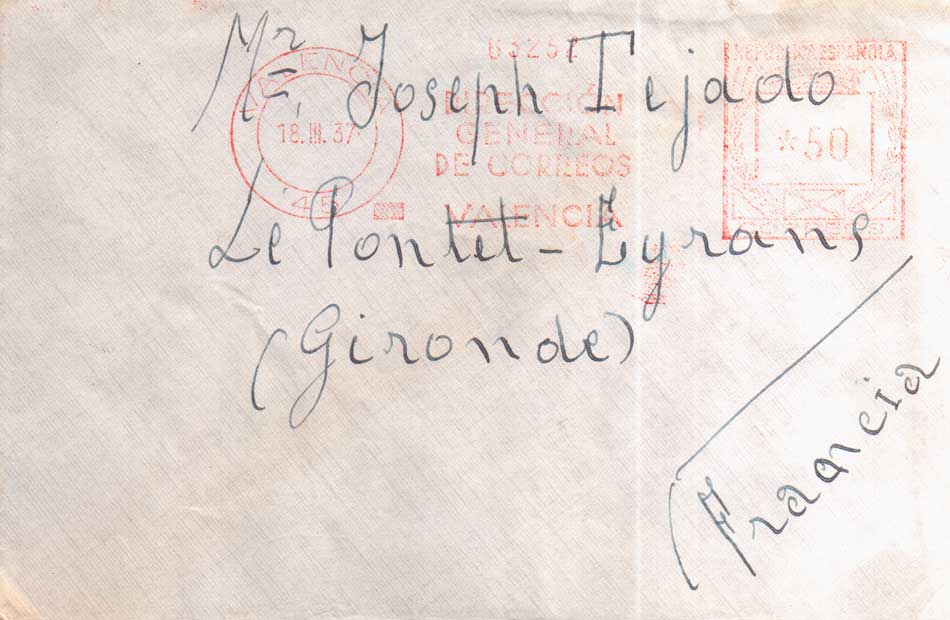 Mr. Joseph Tejado
Le Pontet - Eyrans
(Gironde)
(Francia
VALENCIA
18.III.37
REPUBLICA ESPAÑOLA
*50
CORREOS
DIRECCIÓN
GENERAL
DE CORREOS
VALENCIA